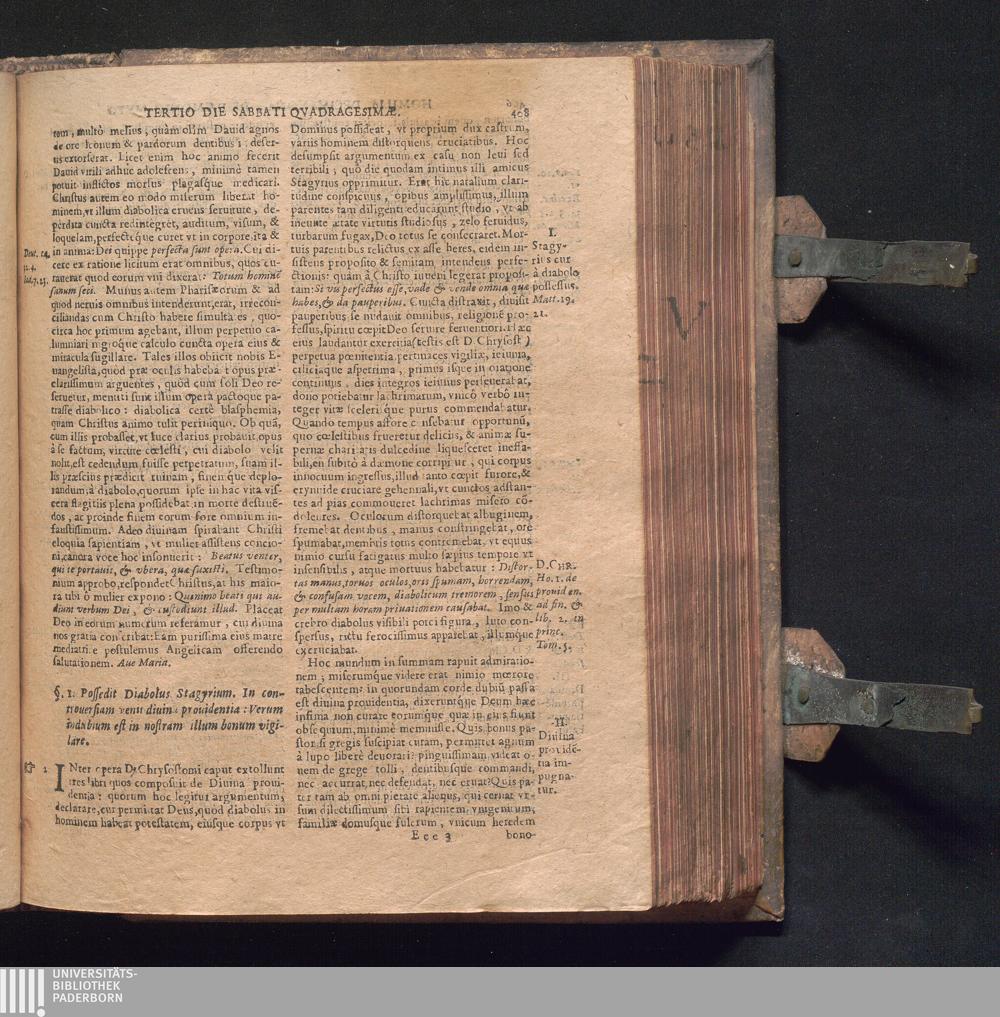 TERTIO DIE SABBATI QVADRAGESIMÆ.
408
rem, multò melius, quàm olim Dauid agnos
de ore leonum & pardorum dentibus
us extorserat. Licet enim hoc animo fecerit
Dauid virili adhuc adolescens, minimè tamen
potuit inflictos morsus plagasque medicari.
Christus autem eo modo miserum liberat ho-
minem, vt illum diabolica eruens seruitute, de-
perdita cuncta redintegret, auditum, visum, &
loquelam, perfectéque curet vt in corpore ita &
in anima: Dei quippe perfecta sunt opera. Cui di-
cere ex ratione licitum erat omnibus, quos cu-
rauerat quod eorum vni dixerat: Totum hominē
sanum feci. Munus autem Pharisæorum & ad
quod neruis omnibus intenderunt, erat, irrecon-
ciliandas cum Christo habere simultates, quo-
circa hoc primum agebant, illum perpetuo ca-
lumniari nigroque calculo cuncta opera eius &
miracula sugillare. Tales illos obiicit nobis E-
uangelista, quòd præ oculis habebāt opus præ-
clarissimum arguentes, quòd cum soli Deo re-
seruetur, mentiti sunt illum opera pactoque pa-
trasse diabolico: diabolica certè blasphemia,
quam Christus animo tulit periniquo. Ob quā,
cum illis probasset, vt luce clarius probauit, opus
à se factum, virtute cœlesti, cui diabolo velit
nolit, est cedendum, fuisse perpetratum, suam il-
lis præscius prædicit ruinam, finemque deplo-
randum, à diabolo, quorum ipse in hac vita vis-
cera flagitiis plena possidebat, in morte destinē-
dos, ac proinde finem eorum fore omnium in-
faustissimum. Adeò diuinam spirabant Christi
eloquia sapientiam, vt mulier assistens concio-
ni, canora voce hoc insonuerit: Beatus venter,
qui te portauit, & vbera, quæ suxisti. Testimo-
nium approbo, respondet Christus, at his maio-
ra tibi ô mulier expono: Quinimo beati qui au-
diunt verbum Dei, & custodiunt illud. Placeat
Deo in eorum numerum referamur, cui diuina
nos gratia conscribat: Eam purissima eius matre
mediatrice postulemus Angelicam offerendo
salutationem. Aue Maria.
§. 1. Possedit Diabolus Stagyrium. In con-
trouersiam venit diuina prouidentia: Verum
indubium est in nostram illum bonum vigi-
lare.
☞ 1. INter opera D. Chrysostomi caput extollunt
tres libri quos composuit de Diuina proui-
dentia: quorum hoc legitur argumentum,
declarare, cur permittat Deus, quòd diabolus in
hominem habeat potestatem, eiusque corpus vt
Deut. 24.
n. 4.
Io. 7. 23.
Dominus possideat, vt proprium dux castrum,
variis hominem distorquens cruciatibus. Hoc
desumpsit argumentum ex casu non leui sed
terribili; quò die quodam intimus illi amicus
Stagyrius opprimitur. Erat hic natalium clari-
tudine conspicuus, opibus amplissimus, illum
parentes tam diligenti educarunt studio, vt ab
ineunte ætate virtutis studiosus, zelo feruidus,
turbarum fugax, Deo totus se consecraret. Mor-
tuis parentibus relictus ex asse heres, eidem in-
sistens proposito & semitam intendens perfe-
ctionis: quàm à Christo iuueni legerat proposi-
tam: Si vis perfectus esse, vade & vende omnia quæ
habes, & da pauperibus. Cuncta distraxit, diuisit
pauperibus se nudauit omnibus, religionē pro-
fessus, spiritu cœpit Deo seruire feruentiori. Hæc
eius laudantur exercitia (testis est D. Chrysost.)
perpetua pœnitentia, pertinaces vigiliæ, ieiunia,
ciliciaque asperrima, primus isque in oratione
continuus, dies integros ieiunus perseuerabat,
dono potiebatur lachrimarum, vnicò verbò in-
teger vitæ scelerisque purus commendabatur.
Quando tempus adfore censebatur opportunū,
quo cœlestibus frueretur deliciis, & animæ su-
pernæ charitatis dulcedine liquesceret ineffa-
bili, en subitò à dæmone corripitur, qui corpus
innocuum ingressus, illud tanto cœpit furore, &
erynnide cruciare gehennali, vt cunctos adstan-
tes ad pias commoueret lachrimas misero cō-
dolentes. Oculorum distorquebat albuginem,
fremebat dentibus, manus constringebat, ore
spumabat, membris totus contremebat, vt equus
nimio cursu fatigatus multo sæpius tempore vt
insensibilis, atque mortuus habebatur: Distor-
tas manus, toruos oculos, oris spumam, horrendam,
& confusam vocem, diabolicum tremorem, sensus
per multam horam priuationem causabat. Imo &
crebro diabolus visibili porci figura, luto con-
spersus, rictu ferocissimus apparebat, illumque
excruciabat.
Hoc mundum in summam rapuit admiratio-
nem; miserumque videre erat nimio mœrore
tabescentem: in quorundam corde dubiū passa
est diuina prouidentia, dixeruntque Deum hæc
infima non curare eorumque quæ in eius fiunt
obsequium, minimè meminisse. Quis bonus pa-
stor si gregis suscipiat curam, permittet agnum
à lupo liberè deuorari? pinguissimam videat o-
uem de grege tolli, dentibusque commandi,
nec accurrat, nec defendat, nec eruat? Quis pa-
ter tam ab omni pietate alienus, qui cernat vr-
sum dilectissimum sibi rapientem vnigenitum,
familiæ domusque fulcrum, vnicum heredem
Eee 3
bono-
I.
Stagy-
rius cur
à diabolo
possessus.
Matt. 19.
21.
D. CHR.
Ho. 1. de
prouiden.
ad fin. &
lib. 2. in
princ.
Tom. 5.
II.
Diuina
prouidē-
tia im-
pugna-
tur.
V
UNIVERSITÄTS-
BIBLIOTHEK
PADERBORN